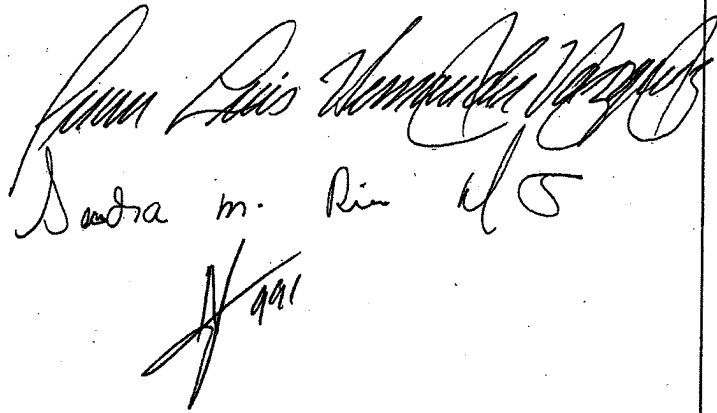 Juan Luis Hernandez Vazquez
Sandra m.
991